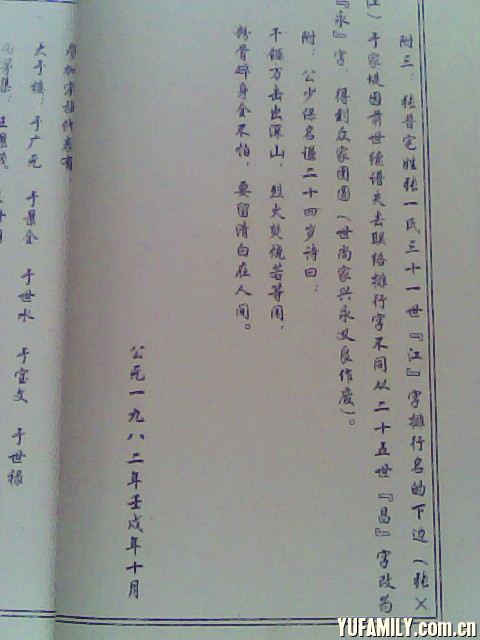 附三：张晋宅姓张一民三十一世『江』字排行名的下边（张×
江）于家堤因前世续谱失去联络排行字不同从二十五世『昌』字改为
『永』字，得到众家团圆（世尚家兴永又良作庆）。
附：公少保名谦二十四岁诗曰：
千锤万击出深山，烈火焚烧若等闲，
粉骨碎身全不怕，要留清白在人间。
公元一九八二年壬戌年十月
于广元 于景全 于世水 于宝文 于世禄
YUFAMILY.com.cn